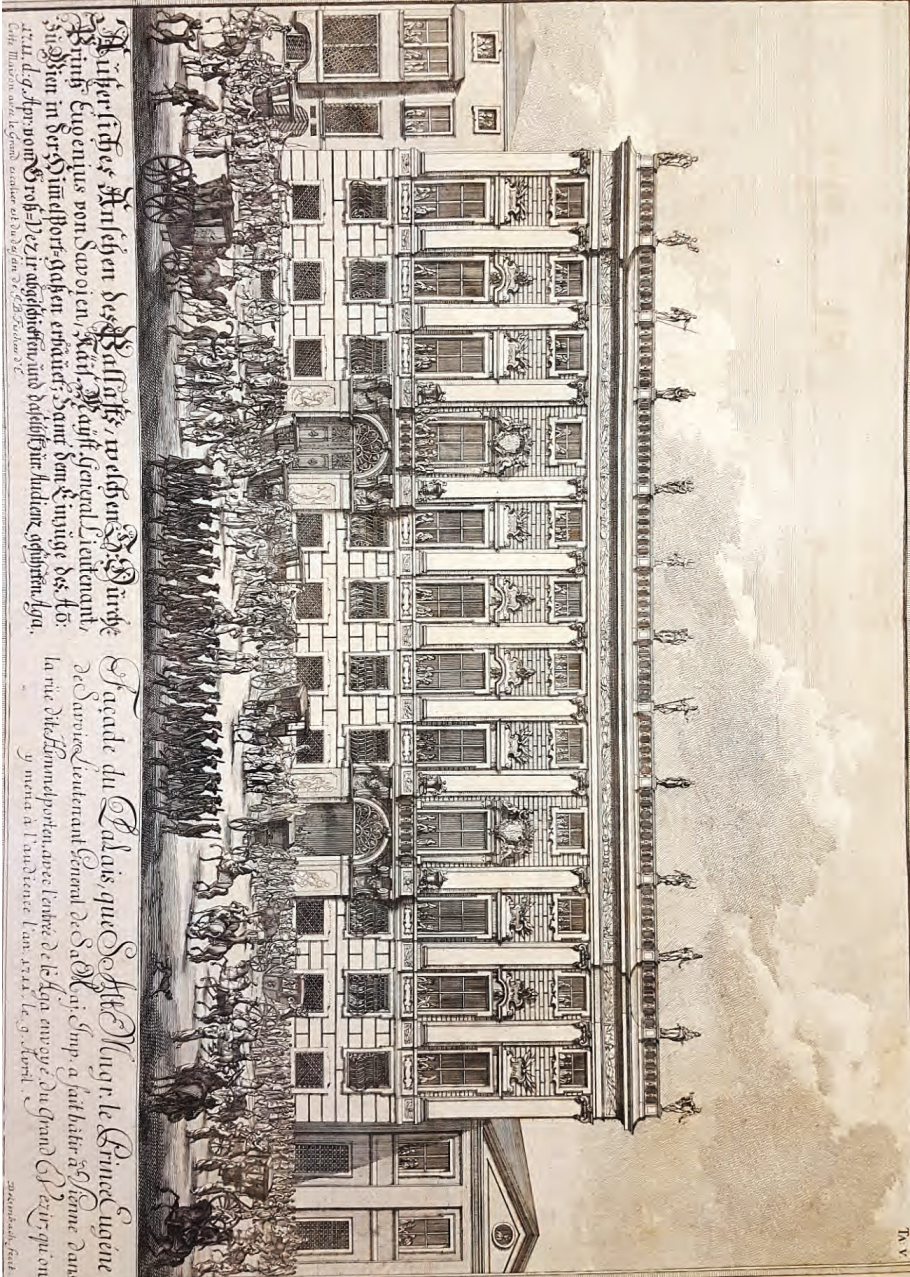 Ta. V
Äußerliches Ansehen des Pallasts, welchen S. Dürchl.
Prinz Eugenius von Savoien, Käis. Mayst. General Lieutenant,
Zü Wien in der Himelport-gaßen erbäuet: Samt dem Einzüge des Aõ.
1711. d. 9. Apr. vom Groß-Vezir abgeschikten, und daselbst zür Audienz geführten Aga.
Cette Maison avec le Grand escalier est du dessin de
Façade du Palais, que S. Alt. Msngr. le Prince Eugéne
de Savoie, Lieutenant General de Sa Maj. Imp. a fait bâtir à Vienne dans
la rüe dite Himmelporten, avec l'entrée de l'Aga envoyé du Grand Vezir, qu'on
y mena à l'audience l'an. 1711. le 9. Avril.
fecit